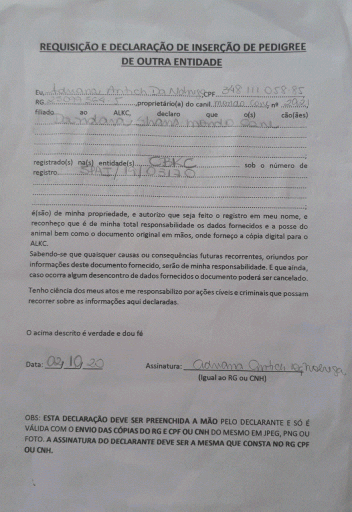 REQUISIÇÃO E DECLARAÇÃO DE INSERÇÃO DE PEDIGREE
DE OUTRA ENTIDADE
Eu, Adriana CPF 348 111 058 85
RG ,proprietário(a) do canil nº
filiado ao ALKC, declaro que o(s) cão(ães)
registrado(s) na(s) entidade(s) CBKC sob o número de
registro
é(são) de minha propriedade, e autorizo que seja feito o registro em meu nome, e
reconheço que é de minha total responsabilidade os dados fornecidos e a posse do
animal bem como o documento original em mãos, onde forneço a cópia digital para o
ALKC.
Sabendo-se que quaisquer causas ou consequências futuras recorrentes, oriundos por
informações deste documento fornecido, serão de minha responsabilidade. E que ainda,
caso ocorra algum desencontro de dados fornecidos o documento poderá ser cancelado.
Tenho ciência dos meus atos e me responsabilizo por ações cíveis e criminais que possam
recorrer sobre as informações aqui declaradas.
O acima descrito é verdade e dou fé
Data: 02/10/20 Assinatura: Adriana
(Igual ao RG ou CNH)
OBS: ESTA DECLARAÇÃO DEVE SER PREENCHIDA A MÃO PELO DECLARANTE E SÓ É
VÁLIDA COM O ENVIO DAS CÓPIAS DO RG E CPF OU CNH DO MESMO EM JPEG, PNG OU
FOTO. A ASSINATURA DO DECLARANTE DEVE SER A MESMA QUE CONSTA NO RG CPF
OU CNH.